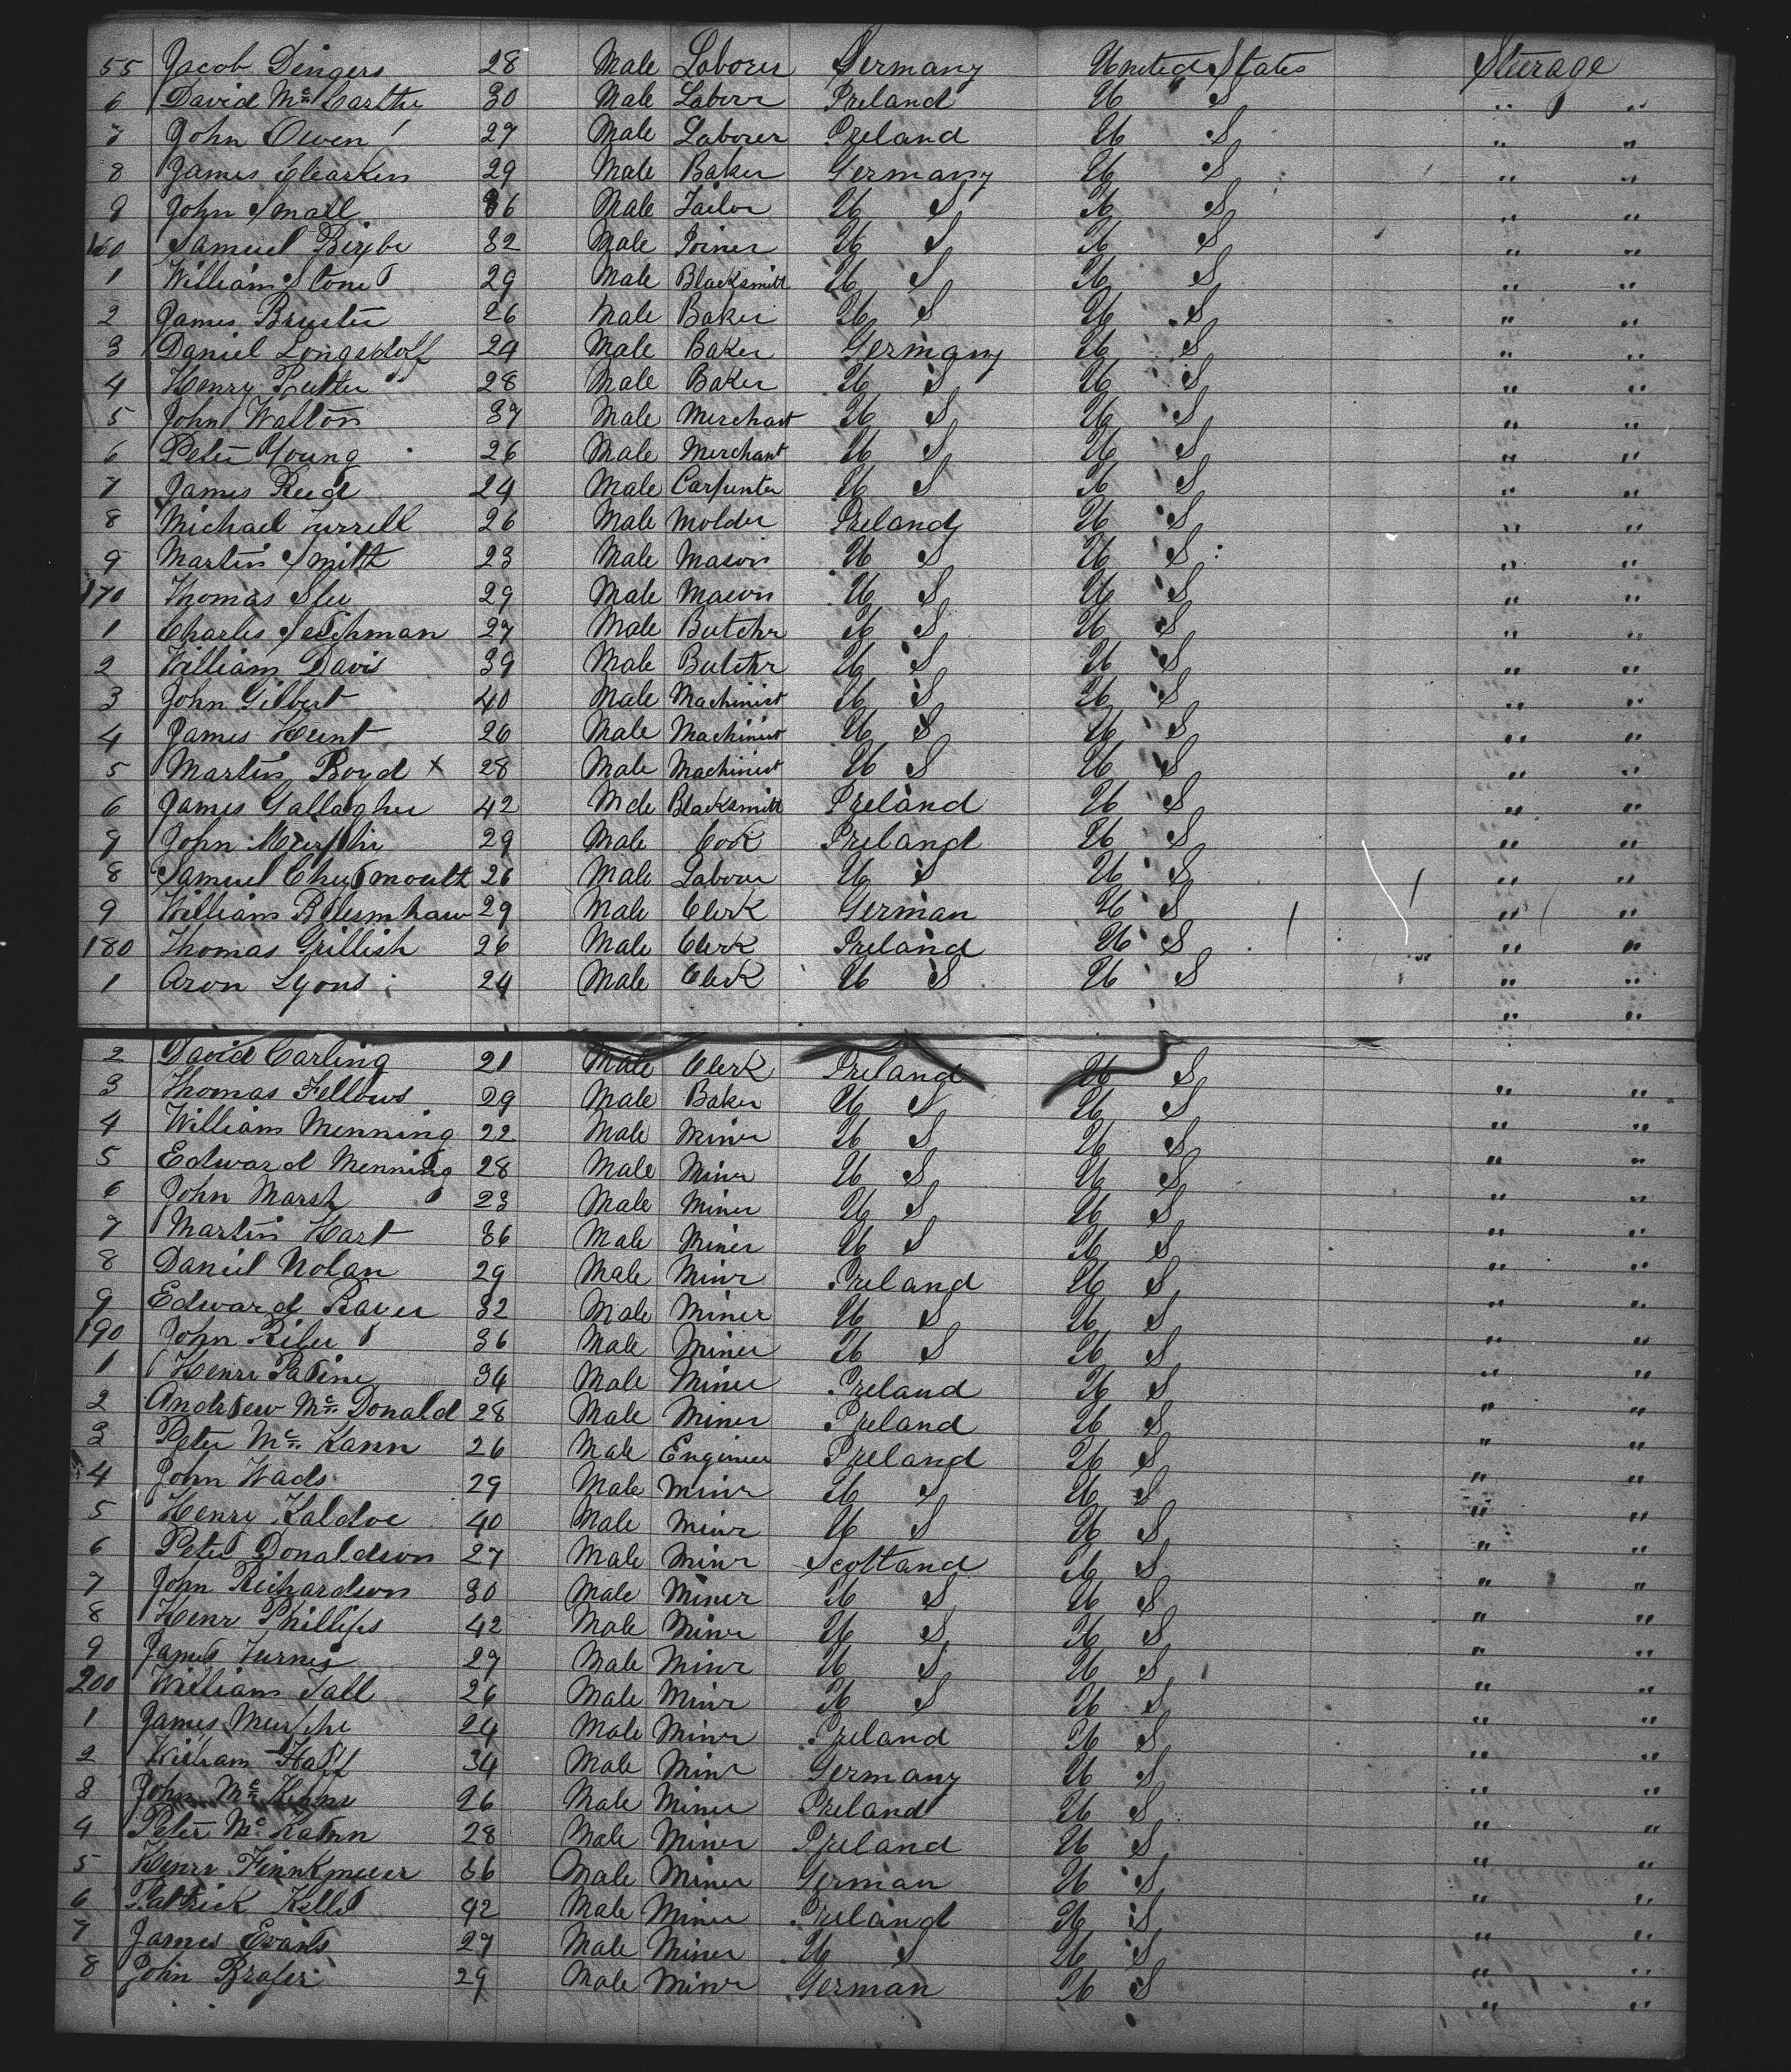 55 Jacob Dingers 28 Male Laborer Germany United States Steerage
6 David Mc Carthy 30 Male Laborer Ireland U S " "
7 John Owen 27 Male Laborer Ireland U S " "
8 James Clearkin 29 Male Baker Germany U S " "
9 John Small 36 Male Tailor U S U S " "
160 Samuel Bixbe 32 Male Joiner U S U S " "
1 William Stone 29 Male Blacksmith U S U S " "
2 James Bruster 26 Male Baker U S U S " "
3 Daniel Longsdoff 24 Male Baker Germany U S " "
4 Henry 28 Male Baker U S U S " "
5 John Walton 37 Male Merchant U S U S " "
6 Peter Young 26 Male Merchant U S U S " "
7 James Reed 24 Male Carpenter U S U S " "
8 Michael Turrell 26 Male Molder Ireland U S " "
9 Martin Smith 23 Male Mason U S U S " "
170 Thomas 29 Male Mason U S U S " "
1 Charles 27 Male Butchr U S U S " "
2 William Davis 39 Male Butchr U S U S " "
3 John Gilbert 40 Male Machinist U S U S " "
4 James Hunt 26 Male Machinist U S U S " "
5 Martin Boyd x 28 Male Machinist U S U S " "
6 James Gallagher 42 Male Blacksmith Ireland U S " "
7 John Murphi 29 Male Cook Ireland U S " "
8 Samuel 26 Male Labour U S U S " "
9 William 29 Male Clerk German U S " "
180 Thomas Grillish 26 Male Clerk Ireland U S " "
1 Aron Lyons 24 Male Clerk U S U S " "
" "
2 David Carling 21 Male Clerk Ireland U S
3 Thomas Fellows 29 Male Baker U S U S " "
4 William Menning 22 Male Miner U S U S " "
5 Edward Menning 28 Male Minr U S U S " "
6 John Marsh 23 Male Miner U S U S " "
7 Martin Hart 36 Male Miner U S U S " "
8 Daniel Nolan 29 Male Minr Ireland U S " "
9 Edward 32 Male Miner U S U S " "
190 John Riley 36 Male Miner U S U S " "
1 Henry 34 Male Miner Ireland U S " "
2 Andrew Mc Donald 28 Male Miner Ireland U S " "
3 Peter Mc Kann 26 Male Engineer Ireland U S " "
4 John Wads 29 Male Minr U S U S " "
5 Henry Kaldoe 40 Male Minr U S U S " "
6 Peter Donaldson 27 Male Minr Scotland U S " "
7 John Richardson 30 Male Miner U S U S " "
8 Henr Phillips 42 Male Minr U S U S " "
9 James Turner 27 Male Minr U S U S " "
200 William Tall 26 Male Minr U S U S " "
1 James Murphi 24 Male Minr Ireland U S " "
2 William Hall 34 Male Minr Germany U S " "
3 John Mc 26 Male Miner Ireland U S " "
4 Peter Mc Kann 28 Male Miner Ireland U S " "
5 Henry Finnkmeyer 36 Male Miner German U S " "
6 Patrick Kelly 42 Male Miner Ireland U S " "
7 James Evans 27 Male Miner U S U S " "
8 John 29 Male Minr German U S " "
" "